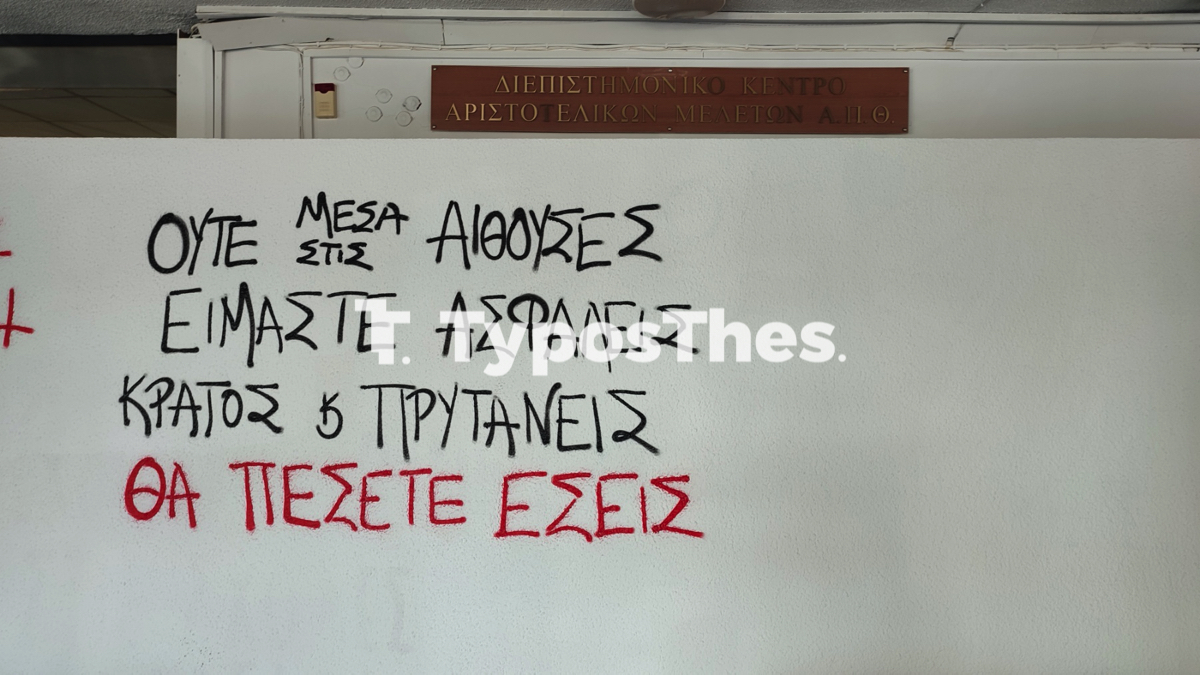 ΔΙΕΠΙΣΤΗΜΟΝΙΚΟ ΚΕΝΤΡΟ
ΑΡΙΣΤΟΤΕΛΙΚΩΝ ΜΕΛΕΤΩΝ Α.Π.Θ.
ΟΥΤΕ ΜΕΣΑ ΣΤΙΣ ΑΙΘΟΥΣΕΣ
ΕΙΜΑΣΤΕ ΑΣΦΑΛΕΙΣ
TyposThes.
ΚΡΑΤΟΣ ϗ ΠΡΥΤΑΝΕΙΣ
ΘΑ ΠΕΣΕΤΕ ΕΣΕΙΣ